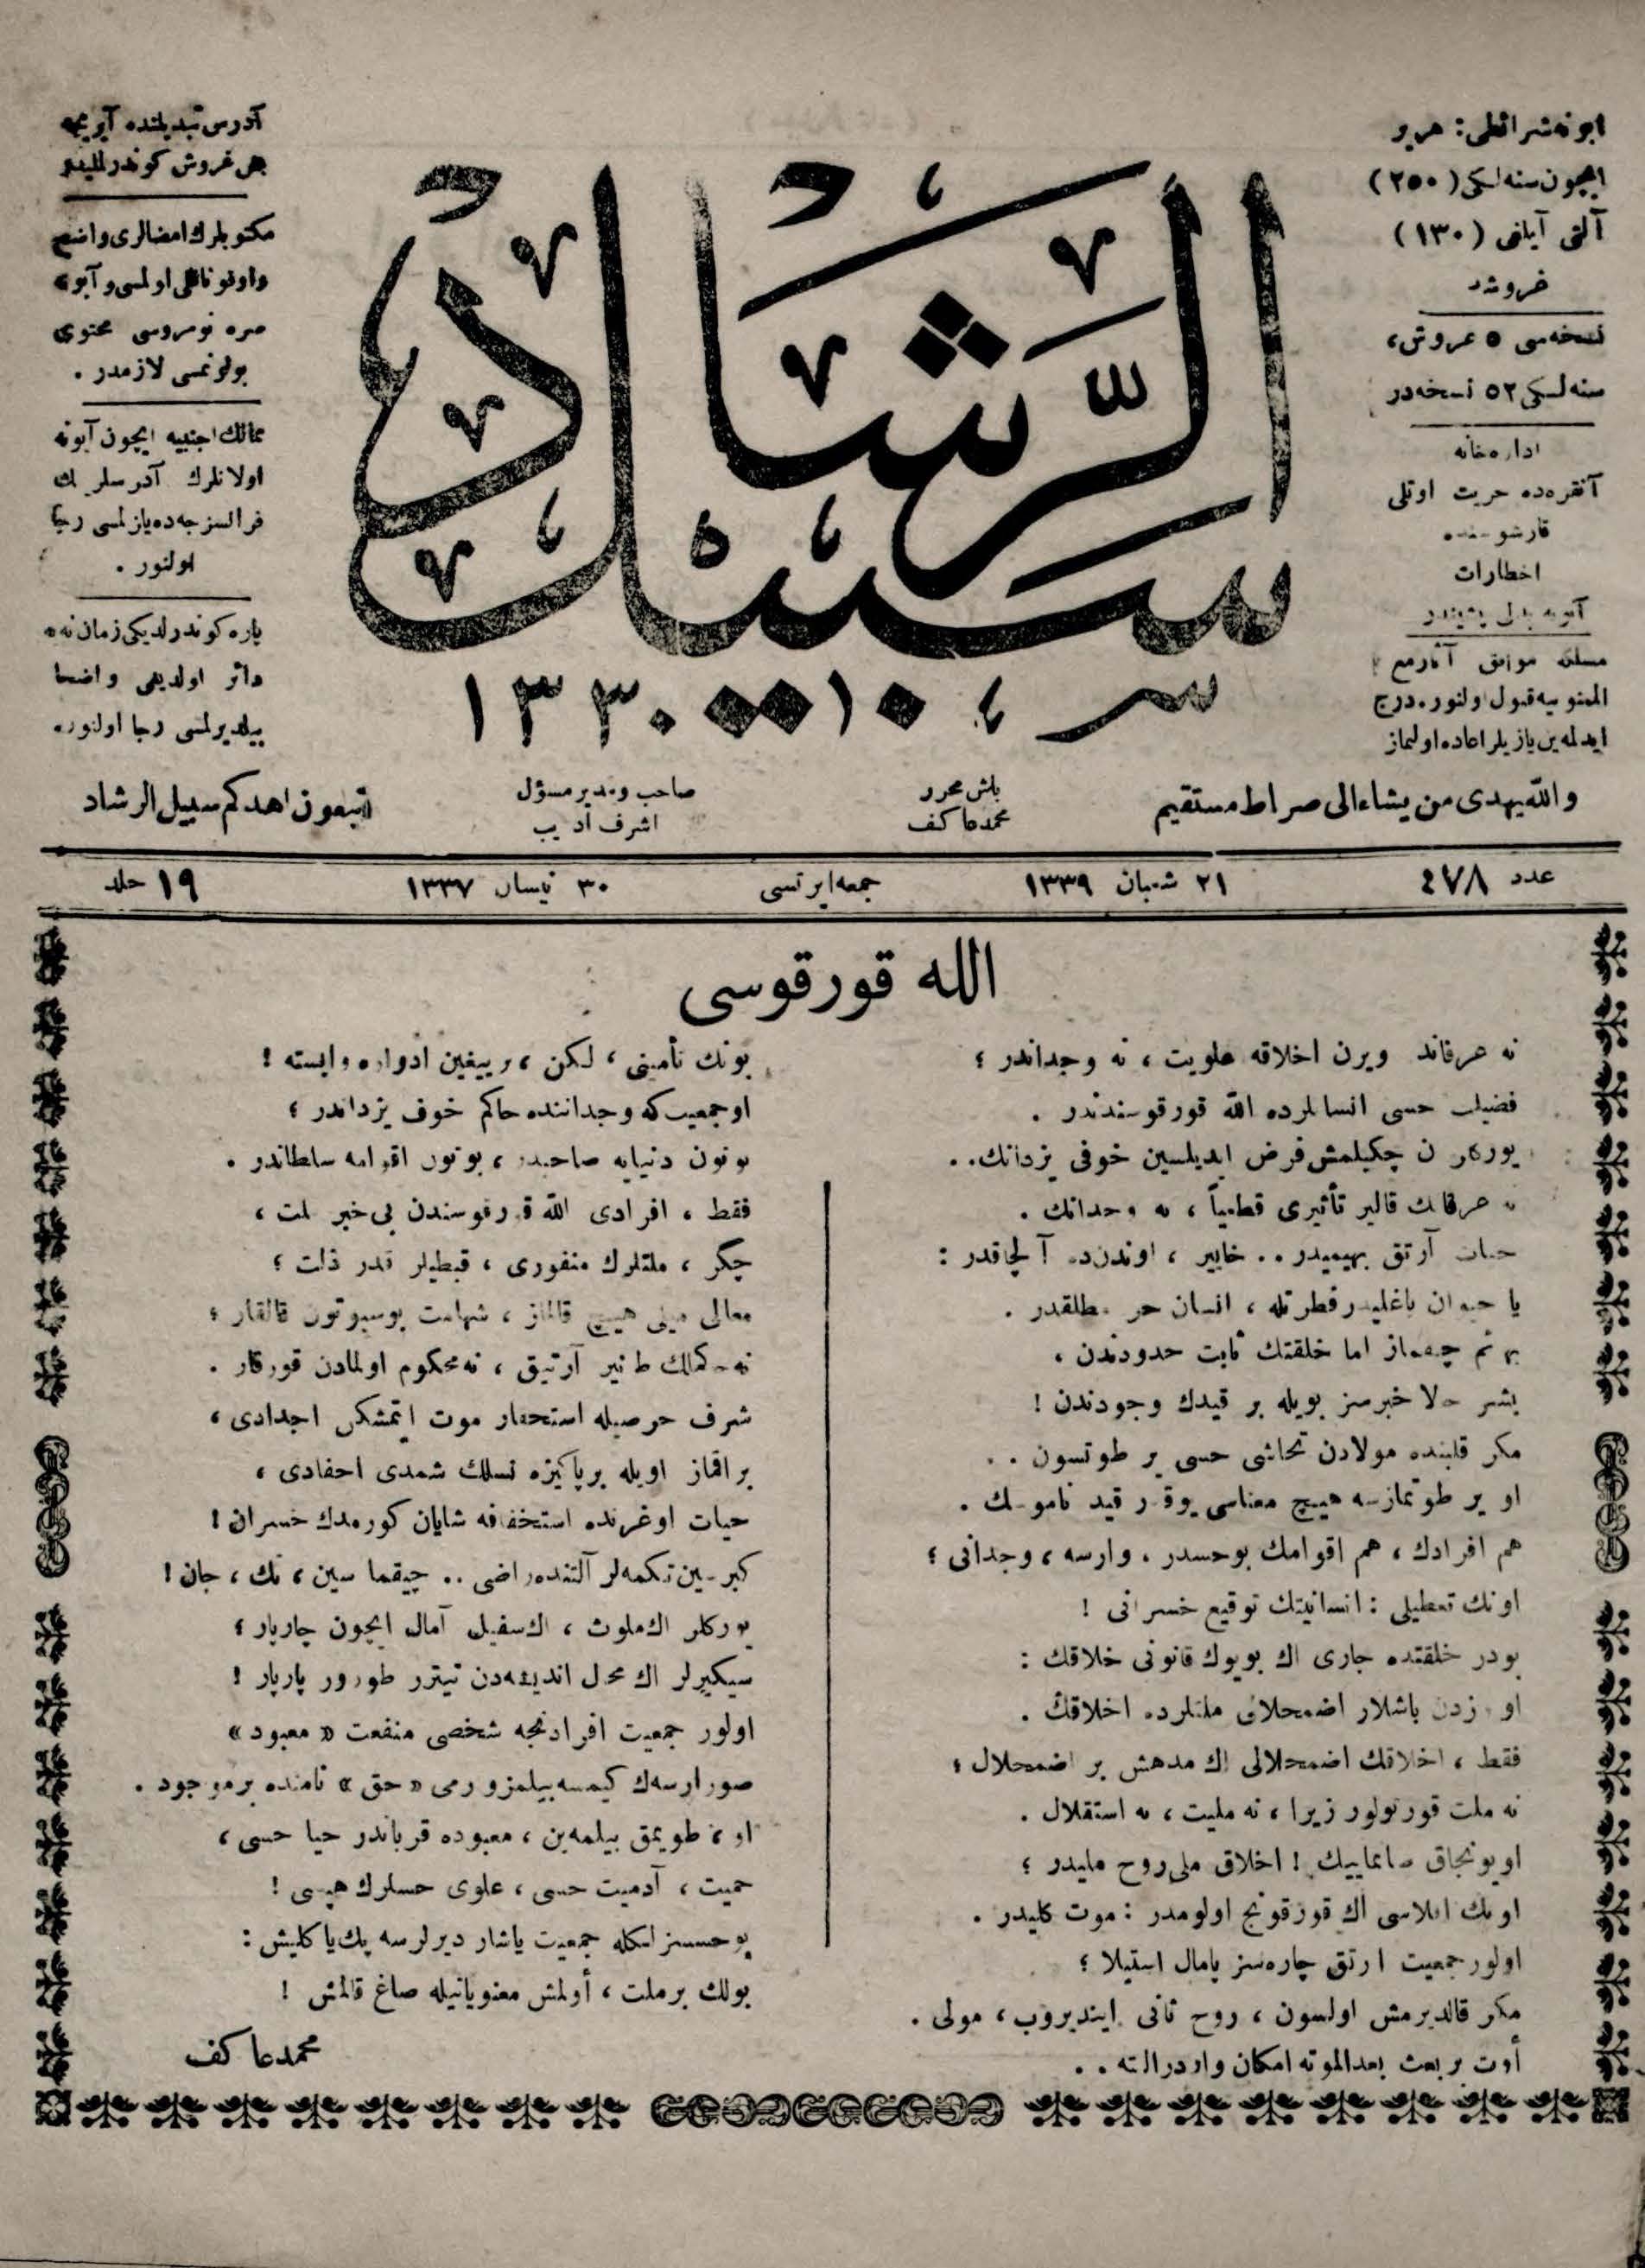 ابونه شرائطی : هر یر
ایچون سنه لکی ( ۲۵۰ )
آلتی آیلغی ( ۱۳۰ )
غروشدر
نسخه سی ۵ غروش ،
سنه لکی ۵۲ نسخه در
اداره خانه
آنقره ده حریت اوتلی
قارشوسنده
اخطارات
آبونه بدلی پشیندر
مسلکه موافق آثار مع
الممنونیه قبول اولنور . درج
ایدلمه ین یازیلر اعاده اولنماز
سبیل الرشاد
۱۳۳۰
آدرس تبدیلنده آیریجه
بش غروش کوندرلملیدر
مکتوبلرك امضالری واضح
واوقوناقلی اولمسی و آبونه
صره نومروسی محتوی
بولونمسی لازمدر .
ممالك اجنبیه ایچون آبونه
اولانلرك آدرسلرینك
فرانسزجه ده یازلمسی رجا
اولنور .
پاره کوندرلدیکی زمان نه یه
دائر اولدیغی واضحا
بیلدیرلمسی رجا اولنور .
والله یهدی من یشاء الی صراط مستقیم
باش محرر
محمد عاکف
صاحب و مدیر مسؤل
اشرف ادیب
اتبعون اهدکم سبیل الرشاد
عدد ٤٧٨ ۲۱ شعبان ۱۳۳۹ جمعه ایرتسی ۳۰ نیسان ۱۳۳۷ جلد ۱۹
الله قورقوسی
نه عرفاندر ویرن اخلاقه علویت ، نه وجداندر ؛
فضیلت حسی انسانلرده الله قورقوسندندر .
یورکلردن چکیلمش فرض ایدیلسین خوفی یزدانك . .
نه عرفانك قالیر تأثیری قطعیاً ، نه وجدانك .
حیات آرتق بهیمیدر . . خایر ، اوندن ده آلچاقدر :
یا حیوان باغلیدر فطرتله ، انسان حر مطلقدر .
بهائم چیقماز اما خلقتك ثابت حدودندن ،
بشر حالا خبرسز بویله بر قیدك وجودندن !
مکر قلبنده مولادن تحاشی حسی یر طوتسون . .
او یر طوتمازسه هیچ معناسی یوقدر قید ناموسك .
هم افرادك ، هم اقوامك بو حسدر ، وارسه ، وجدانی ؛
اونك تعطیلی : انسانیتك توقیع خسرانی !
بودر خلقتده جاری اك بویوك قانونی خلاقك :
او یوزدن باشلار اضمحلالی ملتلرده اخلاقك .
فقط ، اخلاقك اضمحلالی اك مدهش بر اضمحلال ؛
نه ملت قورتولور زیرا ، نه ملیت ، نه استقلال .
اویونجاق صانماییك ! اخلاق ملی روح ملیدر ؛
اونك افلاسی اك قورقونج اولومدر : موت کلیدر .
اولور جمعیت ارتق چاره سز پامال استیلا ؛
مکر قالدیرمش اولسون ، روح ثانی ایندیروب ، مولی .
أوت بر بعث بعدالموته امکان واردر البته . .
بونك تأمینی ، لکن ، بر ییغین ادواره وابسته !
او جمعیت که وجداننده حاکم خوف یزداندر ؛
بوتون دنیایه صاحبدر ، بوتون اقوامه سلطاندر .
فقط ، افرادی الله قورقوسندن بی خبر ملت ،
چکر ، ملتلرك منفوری ، قبطیلر قدر ذلت ؛
معالی میلی هیچ قالماز ، شهامت بوسبوتون قالقار ؛
نه حاکملك طانیر آرتیق ، نه محکوم اولمادن قورقار .
شرف حرصیله استحقار موت ایتمشکن اجدادی ،
براقماز اویله بر پاکیزه نسلك شمدی احفادی ،
حیات اوغرنده استخفافه شایان کورمدك خسران !
کبرسین تکمه لر آلتنده راضی . . چیقما سین ، تك ، جان !
یورکلر اك ملوث ، اك سفیل آمال ایچون چارپار ؛
سیکیرلر اك محال اندیشه دن تیترر طورور پارپار !
اولور جمعیت افرادنجه شخصی منفعت « معبود »
صورارسه ك کیمسه بیلمز وارمی « حق » نامنده بر موجود .
او ، طویمق بیلمه ین ، معبوده قرباندر حیا حسی ،
حمیت ، آدمیت حسی ، علوی حسلرك هپسی !
بو حسسزلکله جمعیت یاشار دیرلرسه پك یاکلیش :
بولك بر ملت ، أولمش معنویاتیله صاغ قالمش !
محمد عاکف